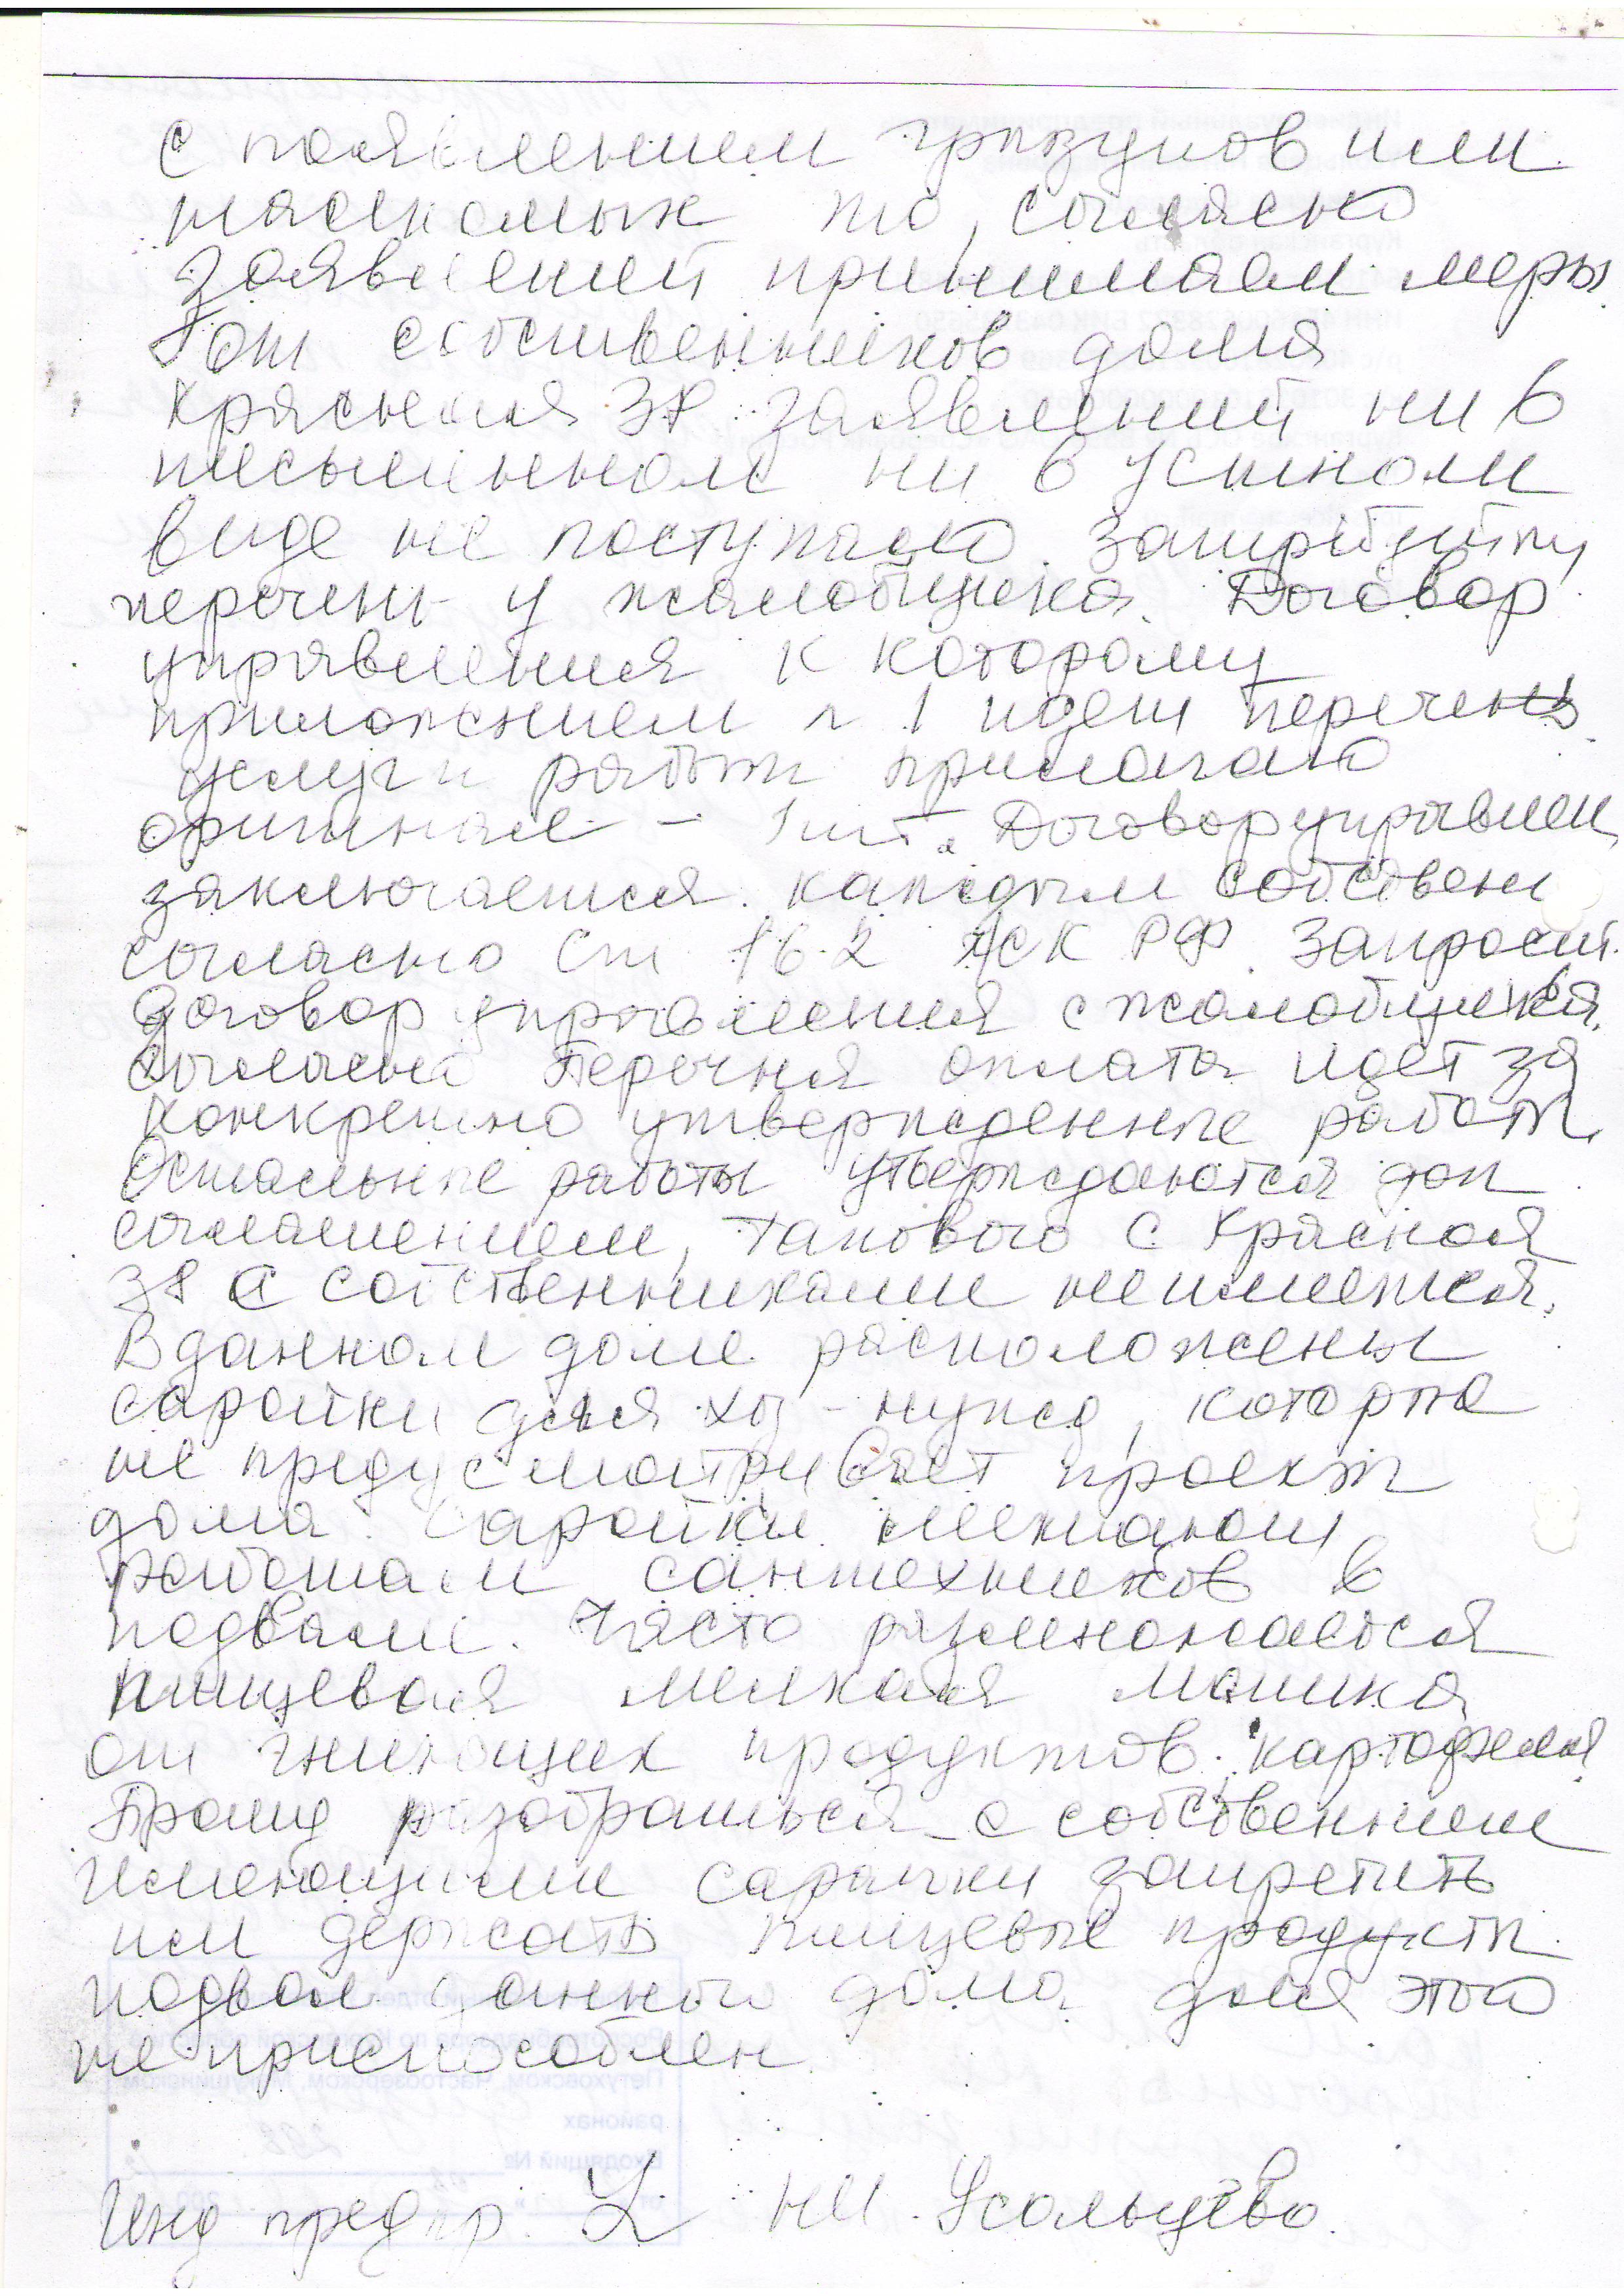 с появлением грызунов или
насекомых то, согласно
заявлений принимаем меры
От собственников дома
Красная 38 заявлений ни в
письменном ни в устном
виде не поступало. Затребуйте
перечень у жалобщика. Договор
управления к которому
приложением № 1 идет перечень
услуг и работ прилагаю
оригинал - 1 шт. Договор управлен
заключается каждым собствен
согласно Ст 162 ЖК РФ. Запросит
договор управления с жалобщика.
Согласно Перечня оплата идет за
конкретно утвержденные работы.
Остальные работы утверждаются доп
соглашением, такового с Красной
38 с собственниками не имеется.
В данном доме расположены
сарайки для хоз-нужд, которые
не предусмотривает проект
дома. Сарайки мешают
работам сантехников в
подвале. Часто размножается
пищевая мелкая мошка
от гниющих продуктов. картофеля
Прошу разобраться с собственнием
имеющими сарайки запретить
им держать пищевые продукты
подвал данного дома для этого
не приспособлен
Инд предпр. НИ Усольцева.